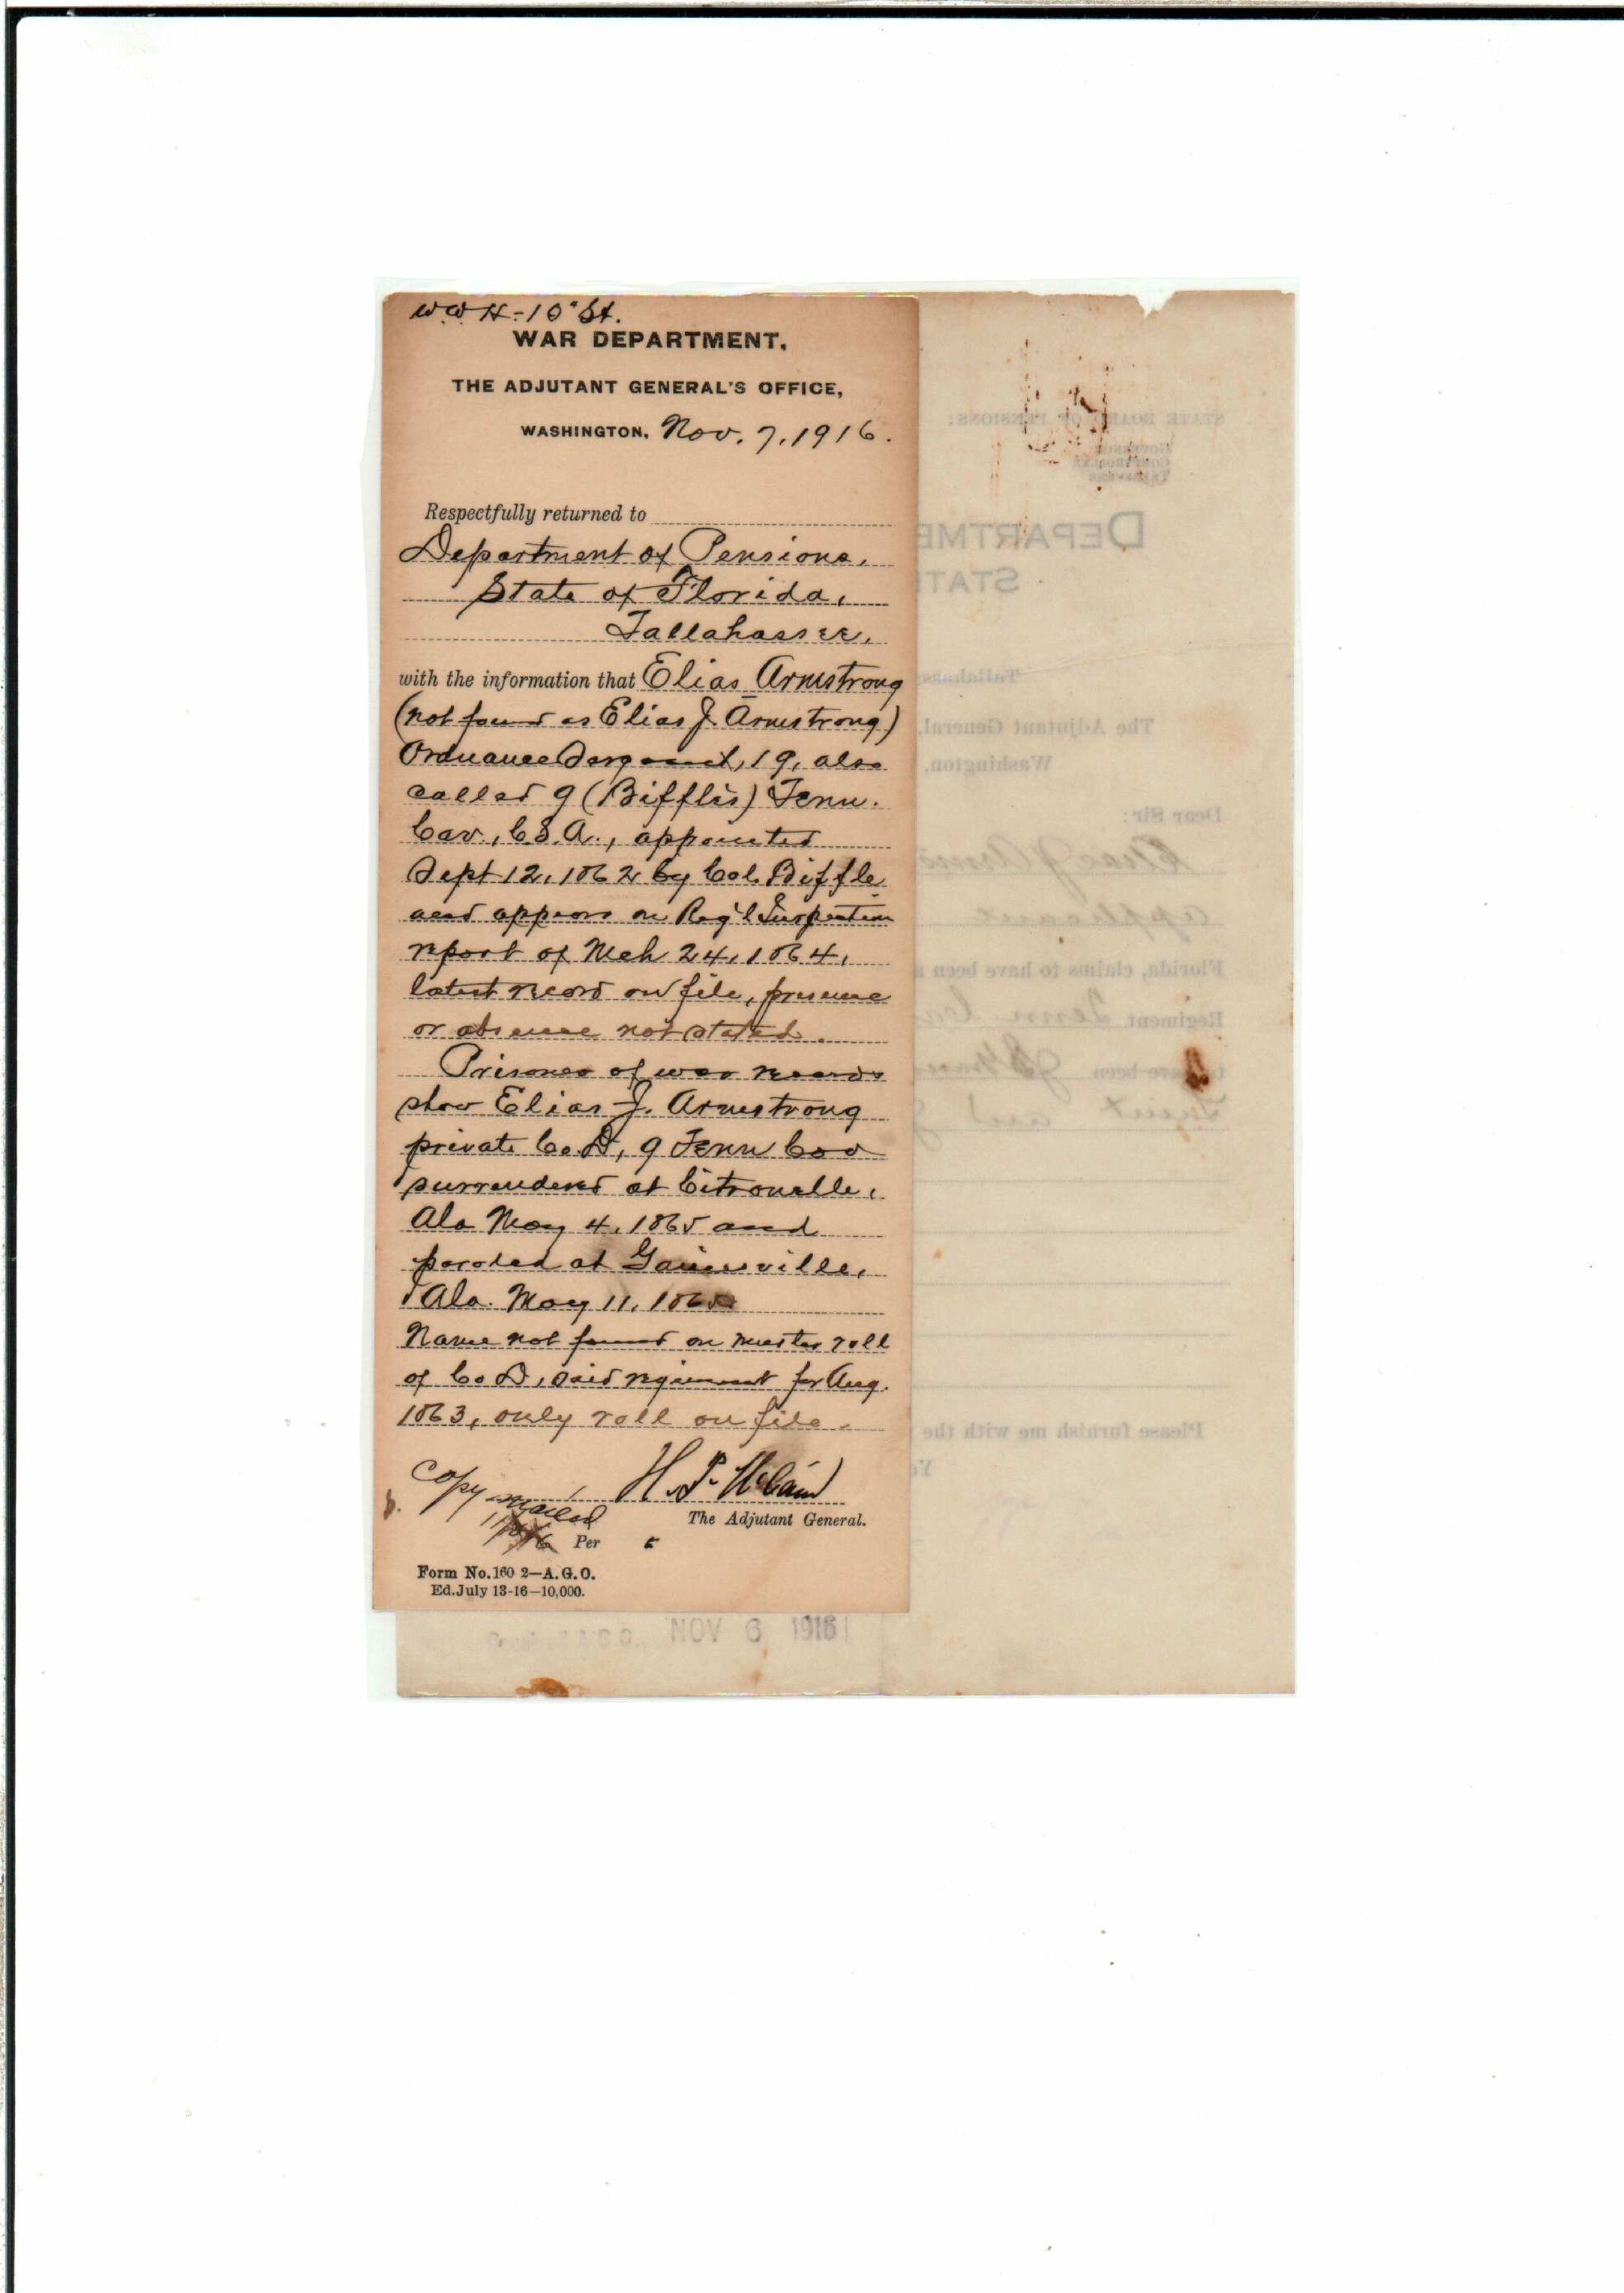 W.W.H.-10" St.
WAR DEPARTMENT,
THE ADJUTANT GENERAL'S OFFICE,
WASHINGTON, Nov. 7, 1916.
Respectfully returned to
Department of Pensions,
State of Florida,
Tallahassee,
with the information that Elias Armstrong
(not found as Elias J. Armstrong)
Ordnance Sergeant, 19, also
called 9 (Biffle's) Tenn.
Cav., C.S.A., appointed
Sept 12, 1862 by Col. Biffle
and appears on Reg'l Inspection
report of Mch 24, 1864,
latest record on file, presence
or absence not stated.
Prisoner of war records
show Elias J. Armstrong
private Co. D, 9 Tenn Cav
surrendered at Citronelle,
Ala May 4, 1865 and
paroled at Gainesville,
Ala. May 11, 1865
Name not found on muster roll
of Co D, said regiment for Aug.
1863, only roll on file.
Copy mailed
H. P. McCain
The Adjutant General.
Per
Form No. 160 2—A.G.O.
Ed. July 13-16—10,000.
A.G.O. NOV 6 1916
STATE BOARD OF PENSIONS:
GOVERNOR
COMPTROLLER
TREASURER
DEPARTME
STAT
Tallahass
The Adjutant General,
Washington,
Dear Sir:
Elias J Arms
applicant
Florida, claims to have been a
Regiment Tenn Cav
have been
and
Please furnish me with the
Yo